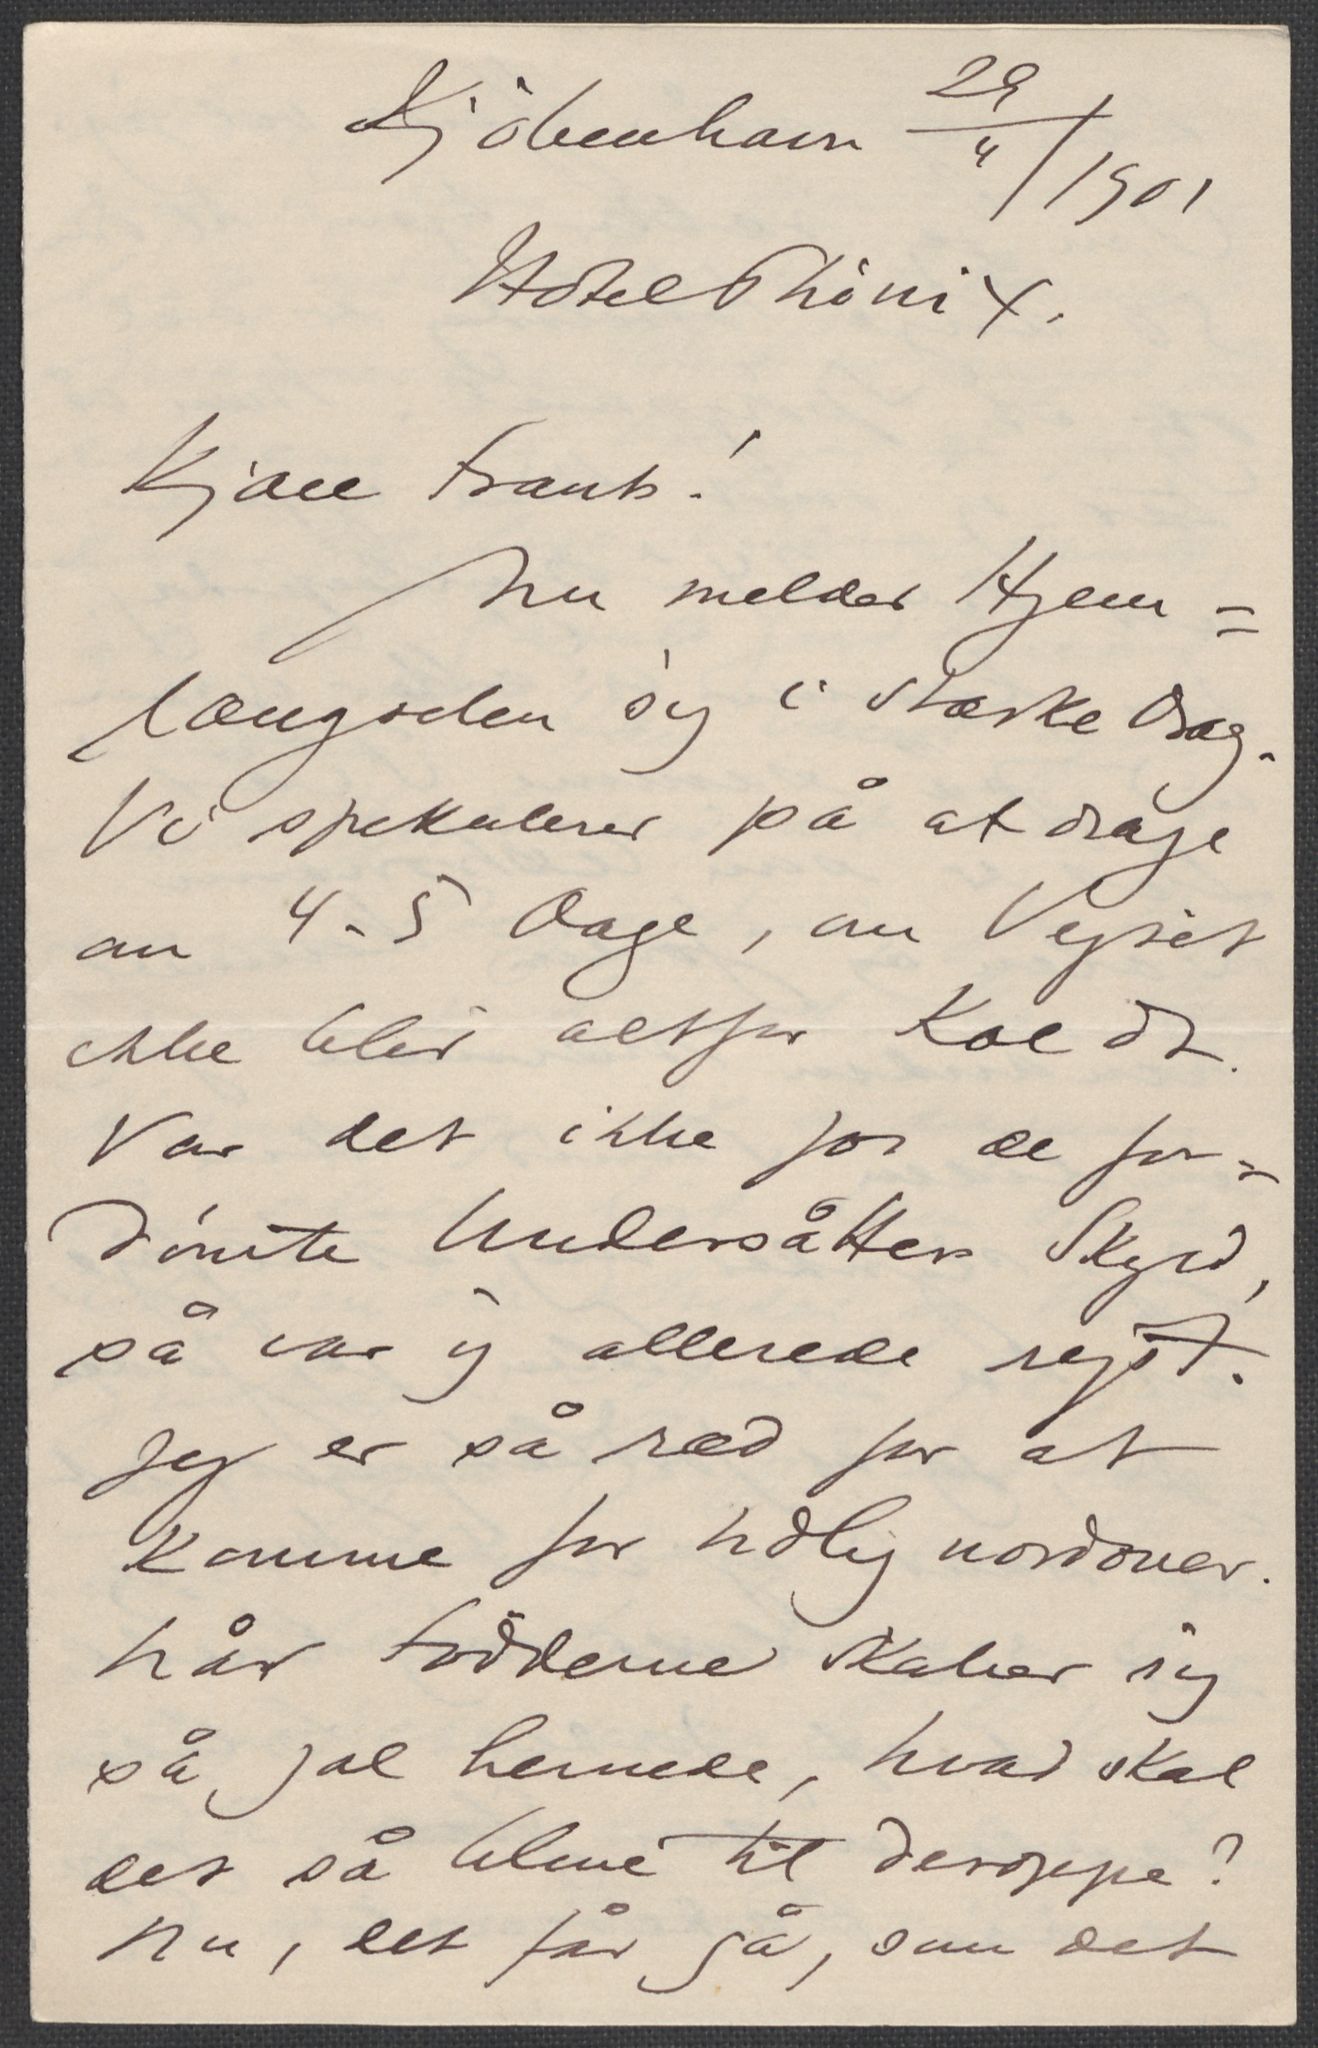 Kjöbenhavn 29/4/1901
Hôtel Phönix.
Kjære Frants!
Nu melder Hjem=
længselen sig i stærke Drag.
Vi spekulerer på at drage
om 4-5 Dage, om Vejret
ikke blir altfor koldt.
Var det ikke for de for=
dömte Undersåtters Skyld,
så var jeg allerede rejst.
Jeg er så ræd for at
komme for tidlig nordover.
Når Födderne skaber sig
så gal hernede, hvad skal
det så blive til deroppe?
Nu, det får gå, som det